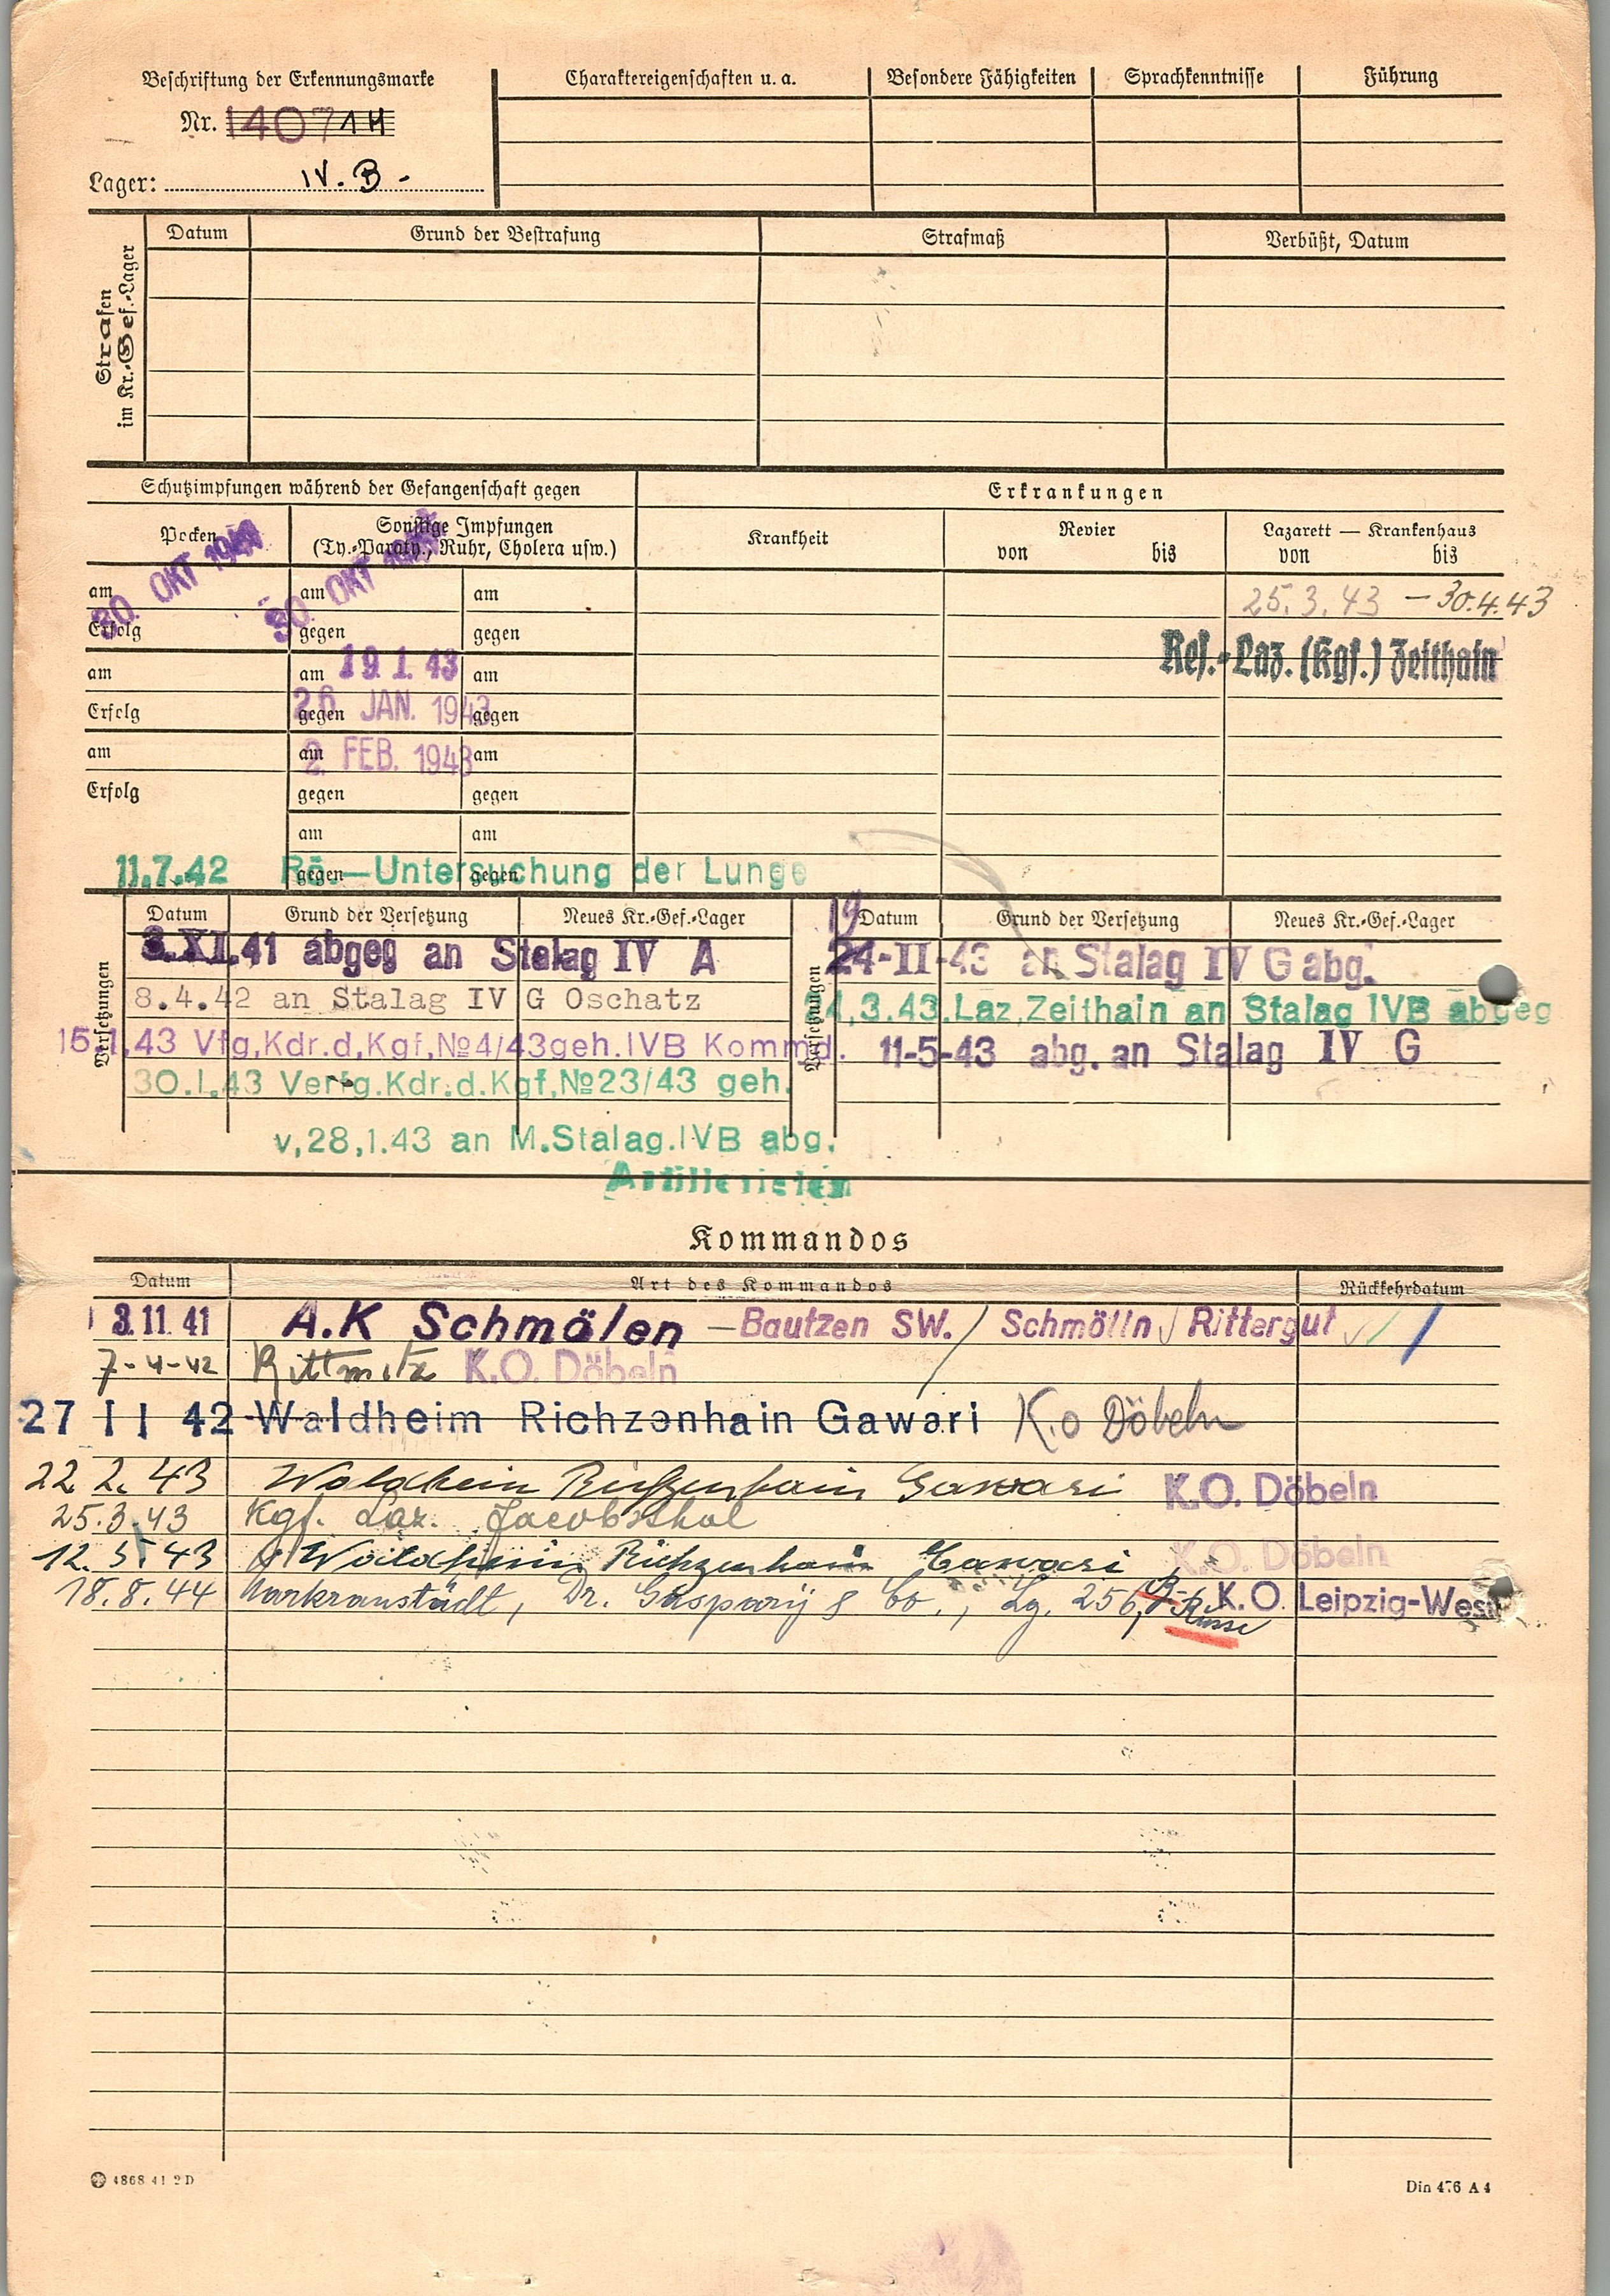 Beschriftung der Erkennungsmarke
Nr. 140714
Lager: IV. B.
Charaktereigenschaften u. a.
Besondere Fähigkeiten
Sprachkenntnisse
Führung
Strafen
im Kr.-Gef.-Lager
Datum
Grund der Bestrafung
Strafmaß
Verbüßt, Datum
Schutzimpfungen während der Gefangenschaft gegen
Erkrankungen
Pocken
Sonstige Impfungen
(Ty.-Paraty., Ruhr, Cholera usw.)
Krankheit
Revier
von bis
Lazarett — Krankenhaus
von bis
am 30. OKT
Erfolg
am 30. OKT
gegen
am
gegen
25.3.43 – 30.4.43
Res.-Laz. (Kgf.) Zeithain
am
Erfolg
am 19 1. 43
gegen 26 JAN. 1943
am
gegen
am
Erfolg
am 2. FEB. 1943
gegen
am
gegen
am
gegen
am
gegen
11.7.42 Rö.—Untersuchung der Lunge
Versetzungen
Datum
Grund der Versetzung
Neues Kr.-Gef.-Lager
3.XI.41 abgeg an Stalag IV A
8.4.42 an Stalag IV G Oschatz
15.1.43 Vfg.Kdr.d.Kgf.№4/43geh.IVB Kommd.
30.1.43 Verfg.Kdr.d.Kgf.№23/43 geh.
v,28,1.43 an M.Stalag.IVB abg.
Artilleristen
Versetzungen
Datum
Grund der Versetzung
Neues Kr.-Gef.-Lager
19
24-II-43 an Stalag IV G abg.
3.43.Laz,Zeithain an Stalag IVB abgeg
11-5-43 abg. an Stalag IV G
Kommandos
Datum
Art des Kommandos
Rückkehrdatum
3. 11. 41 A.K Schmölen — Bautzen SW. / Schmölln / Rittergut
7-4-42 Rittmitz K.O. Döbeln
27 11 42 Waldheim Richzenhain Gawari K.o Döbeln
22 2. 43 Waldheim Richzenhain Gawari K.O. Döbeln
25.3.43 Kgf. Laz. Jacobsthal
12.5.43 Waldheim Richzenhain Gawari K.O. Döbeln
18.8.44 Markranstädt, Dr. Gaspary & Co., Lg. 256, Russe K.O. Leipzig-West
4868 41 2 D
Din 476 A 4